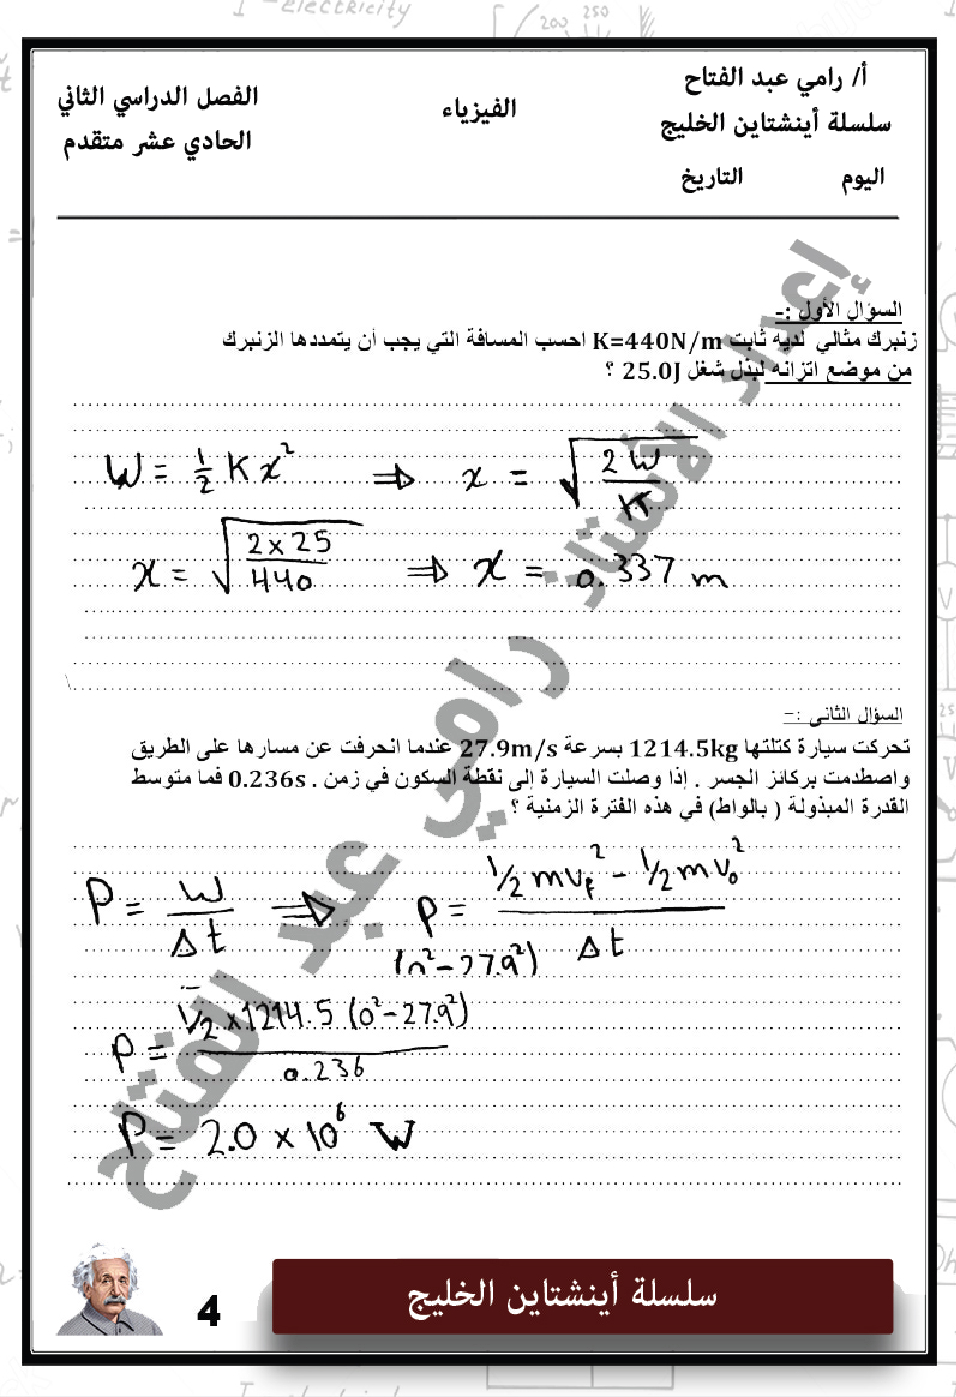 أ/ رامي عبد الفتاح
سلسلة أينشتاين الخليج
اليوم التاريخ
الفيزياء
الفصل الدراسي الثاني
الحادي عشر متقدم
السؤال الأول :-
زنبرك مثالي لديه ثابت K=440N/m احسب المسافة التي يجب أن يتمددها الزنبرك
من موضع اتزانه لبذل شغل 25.0J ؟
W = 1/2 K x² ⇒ x = √(2W/K)
x = √(2×25/440) ⇒ x = 0.337 m
السؤال الثانى :-
تحركت سيارة كتلتها 1214.5kg بسرعة 27.9m/s عندما انحرفت عن مسارها على الطريق
واصطدمت بركائز الجسر . إذا وصلت السيارة إلى نقطة السكون في زمن . 0.236s فما متوسط
القدرة المبذولة ( بالواط) في هذه الفترة الزمنية ؟
P = W/Δt ⇒ P = (1/2 mv_f² - 1/2 mv₀²)/Δt
(0²-27.9²)
P = 1/2 ×1214.5 (0²-27.9²)/0.236
P = 2.0 × 10⁶ W
إعداد الأستاذ رامي عبد الفتاح
4
سلسلة أينشتاين الخليج